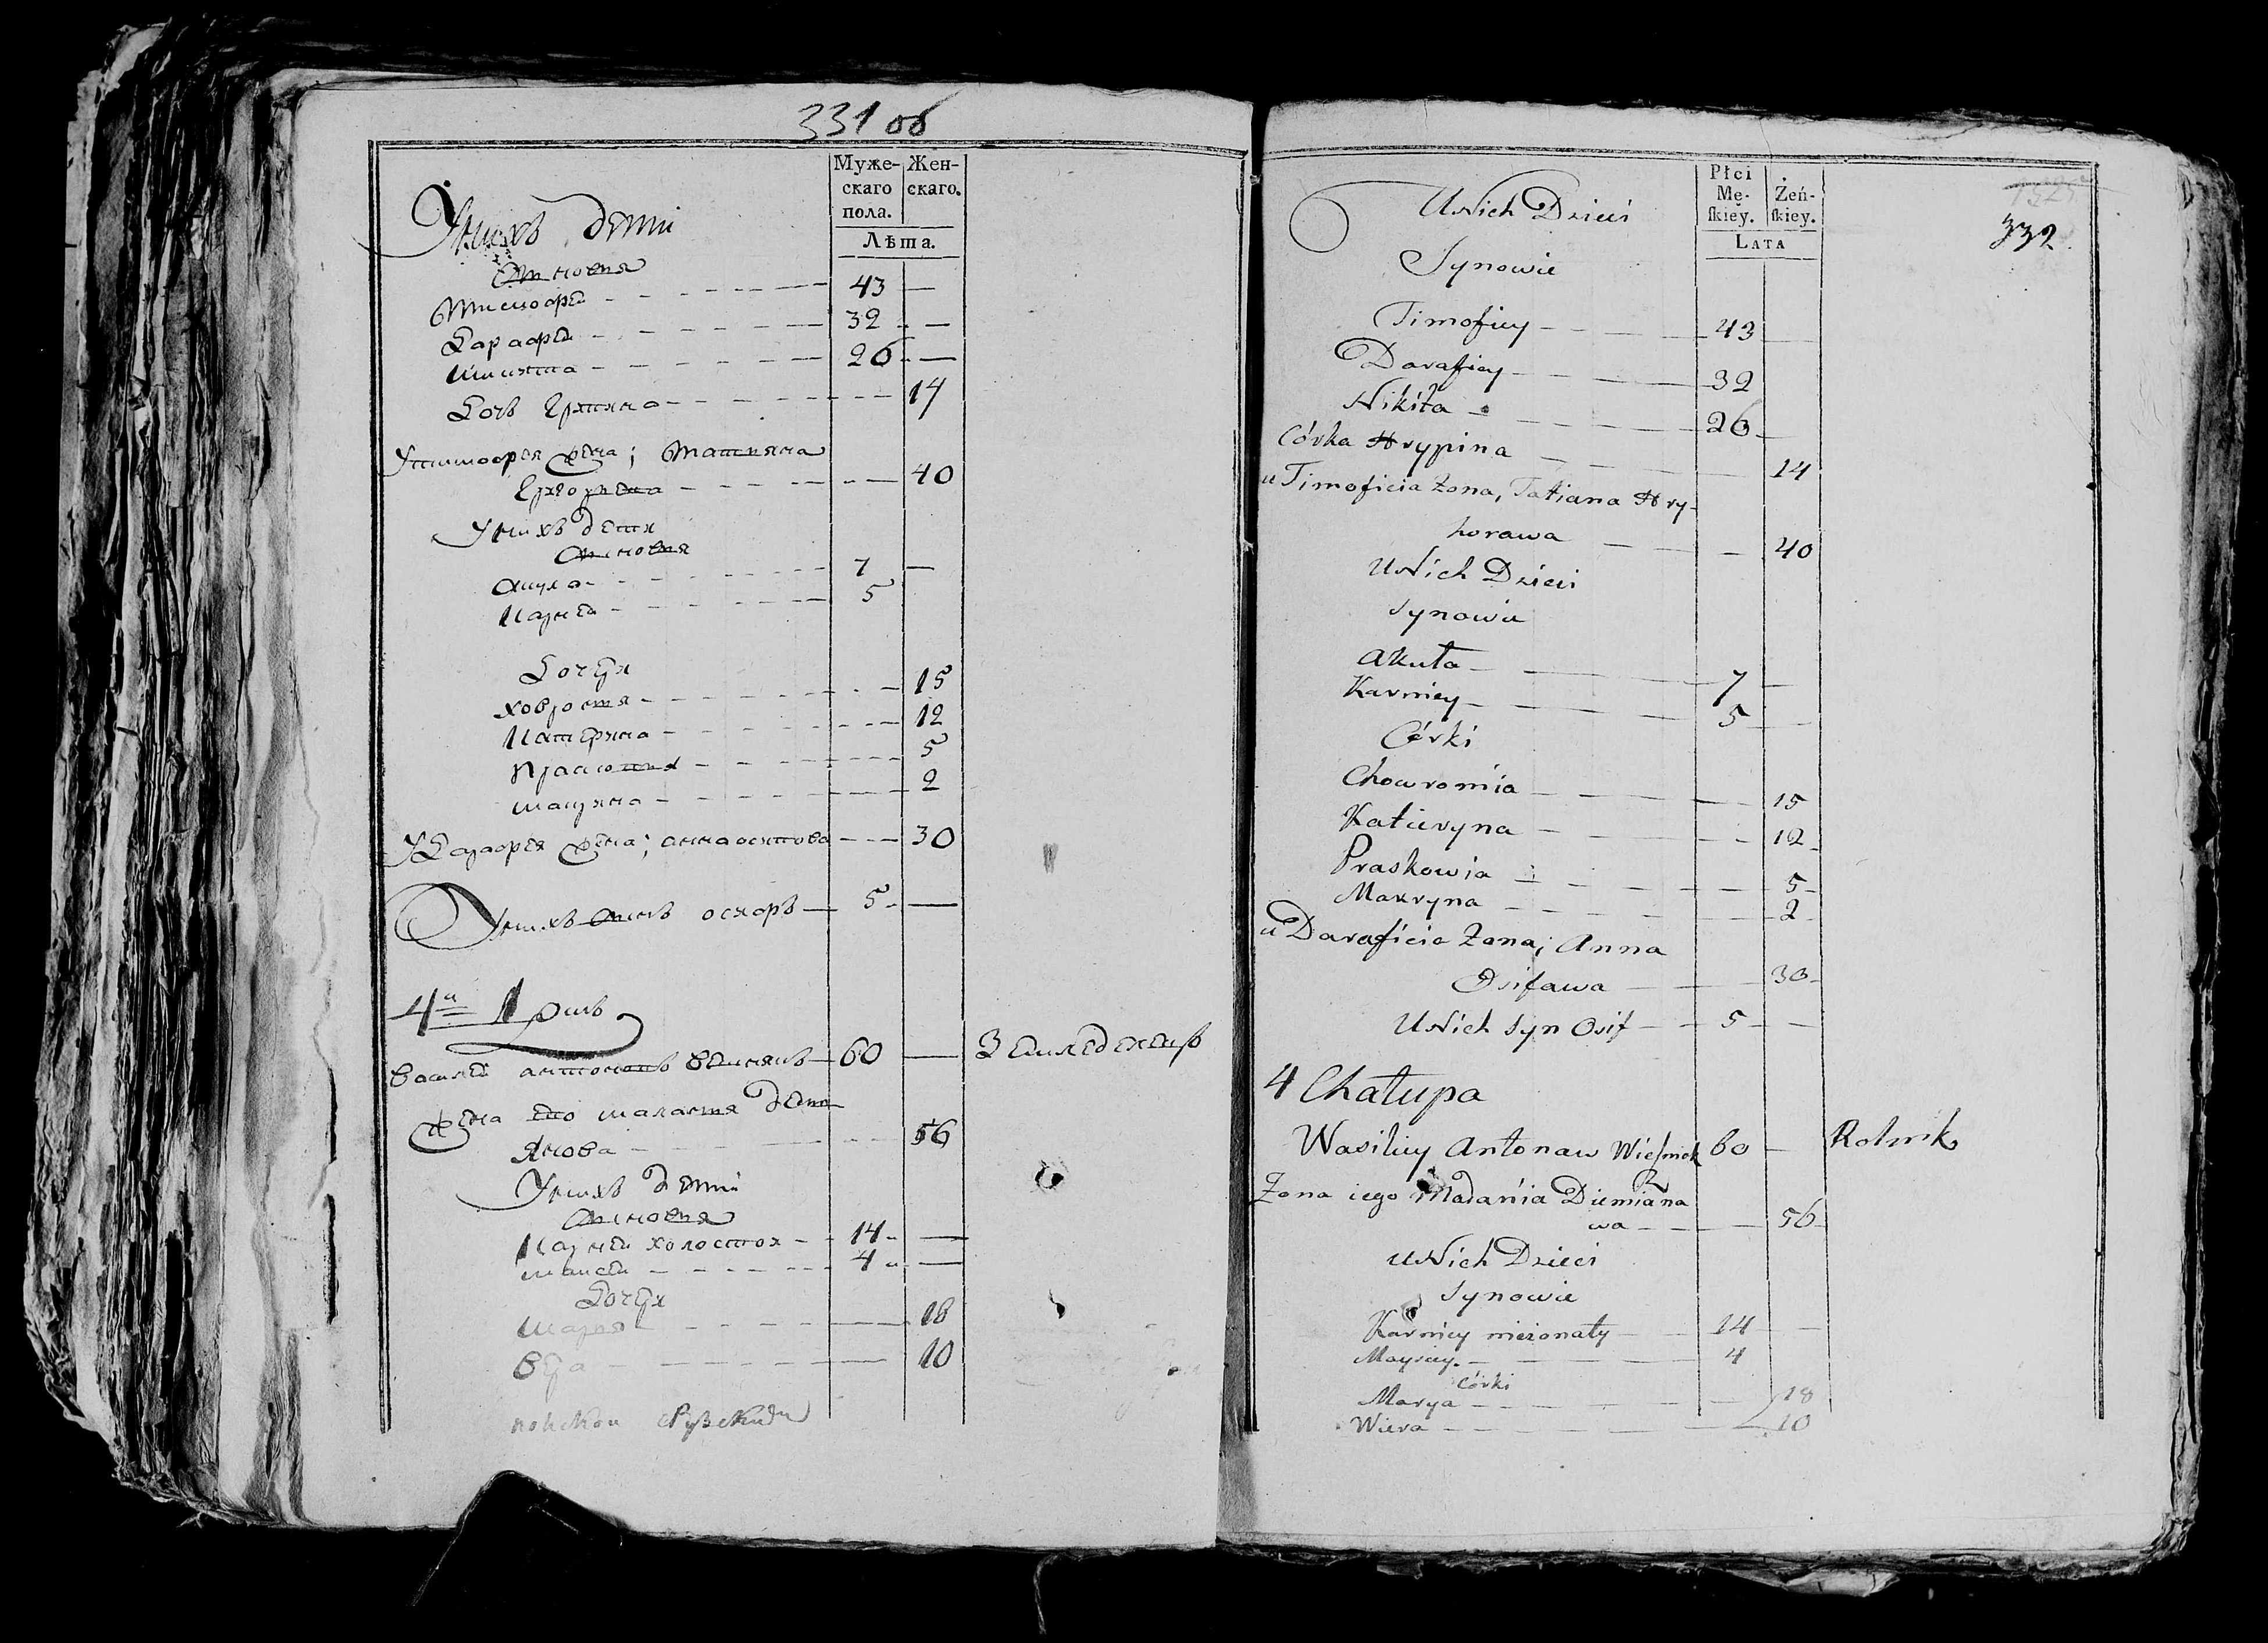 331 об
Муже- Жен-
скаго скаго.
пола.
Лѣта.
У нихъ дети
Сыновья
Тимофей 43 —
Дарафей 32 —
Никита 26 —
Дочь 14
У Тимофея жена; Татьяна
40
У нихъ дети
Сыновья
Акула 7 —
Карней 5
Дочери
Ховроня 15
Катерина 12
Прасковья 5
Макрина 2
У Дарафея жена; Анна Осипова 30
У нихъ сынъ Осипъ 5 —
4я
Василей Антоновъ 60 — Земледелецъ
Жена его Маланья Демья
нова 56
У нихъ дети
Сыновья
Карней холостой 14 —
Мансей 4 —
Дочери
Марья 18
Вера 10
332
Płci
Mę- Żeń-
skiey. skiey.
LATA
U Nich Dzieci
Synowie
Timofiey 43
Darafiey 32
Nikita 26
Córka Hrypina 14
u Timofieia Zona, Tatiana Hry-
horawa 40
U Nich Dzieci
Synowie
Akuła 7
Karniey 5
Córki
Chowronia 15
Katieryna 12
Praskowia 5
Makryna 2
u Darafieia Zona; Anna
Osifawa 30
U Nich Syn Osif 5
4 Chałupa
Wasiliey Antonaw 60 Rolnik
Zona iego Małańia Diemiana
wa 56
U Nich Dzieci
Synowie
Karniey nieżonaty 14
Maysiey 4
Córki
Marya 18
Wiera 10